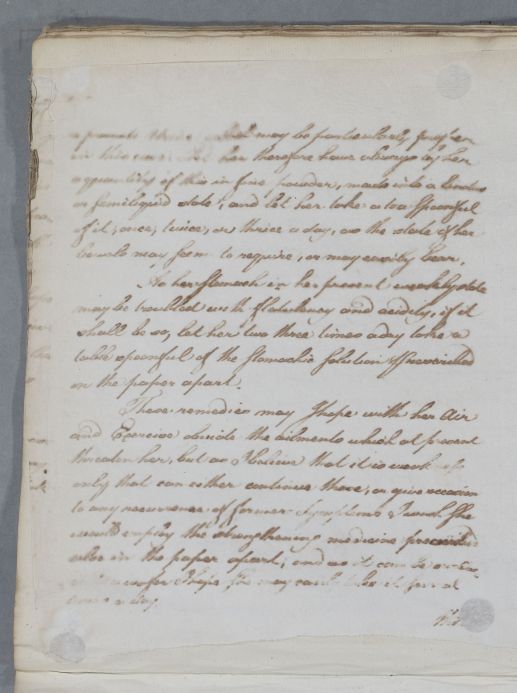 may be particularly
in this Let her therefore have always by her
a quantity of this in fine powder, made into a
or semiliquid state, and let her take a tea spoonful
of it, once, twice, or thrice a day, as the state of her
bowels may seem to require, or may easily bear.
As her Stomach in her present weakly state
may be troubled with flatulency and acidity, if it
shall be so, let her two three times a day take a
table spoonful of the Stomachic Solution
on the paper apart.
These remedies may I hope with her Air
and Exercise obviate the ailments which at present
threaten her, but as I believe that it is weakness
only that can either continue these, or give occasion
to any recurrence of former Symptoms I wish She
would employ the strengthening medicine prescribed
also in the paper apart, and as it can be
She may
times a day